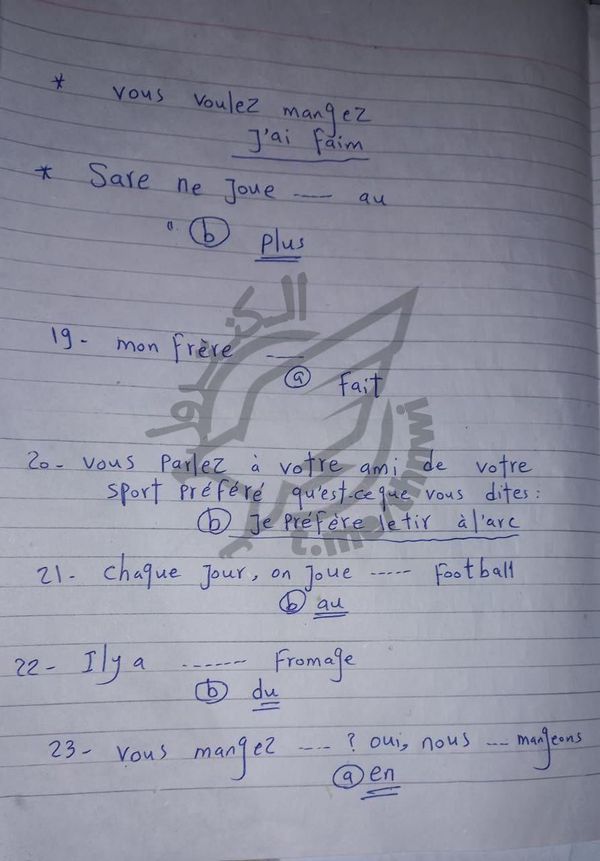 * vous voulez mangez
J'ai faim
* Sare ne Joue ---- au
(b) Plus
19- mon frère ----
(a) Fait
20- vous Parlez à votre ami de votre
sport préféré qu'est-ce que vous dites:
(b) Je préfère le tir à l'arc
21- chaque Jour, on Joue ----- Football
(b) au
22- Il y a ------ Fromage
(b) du
23- vous mangez ---- ? oui, nous --- mangeons
(a) en